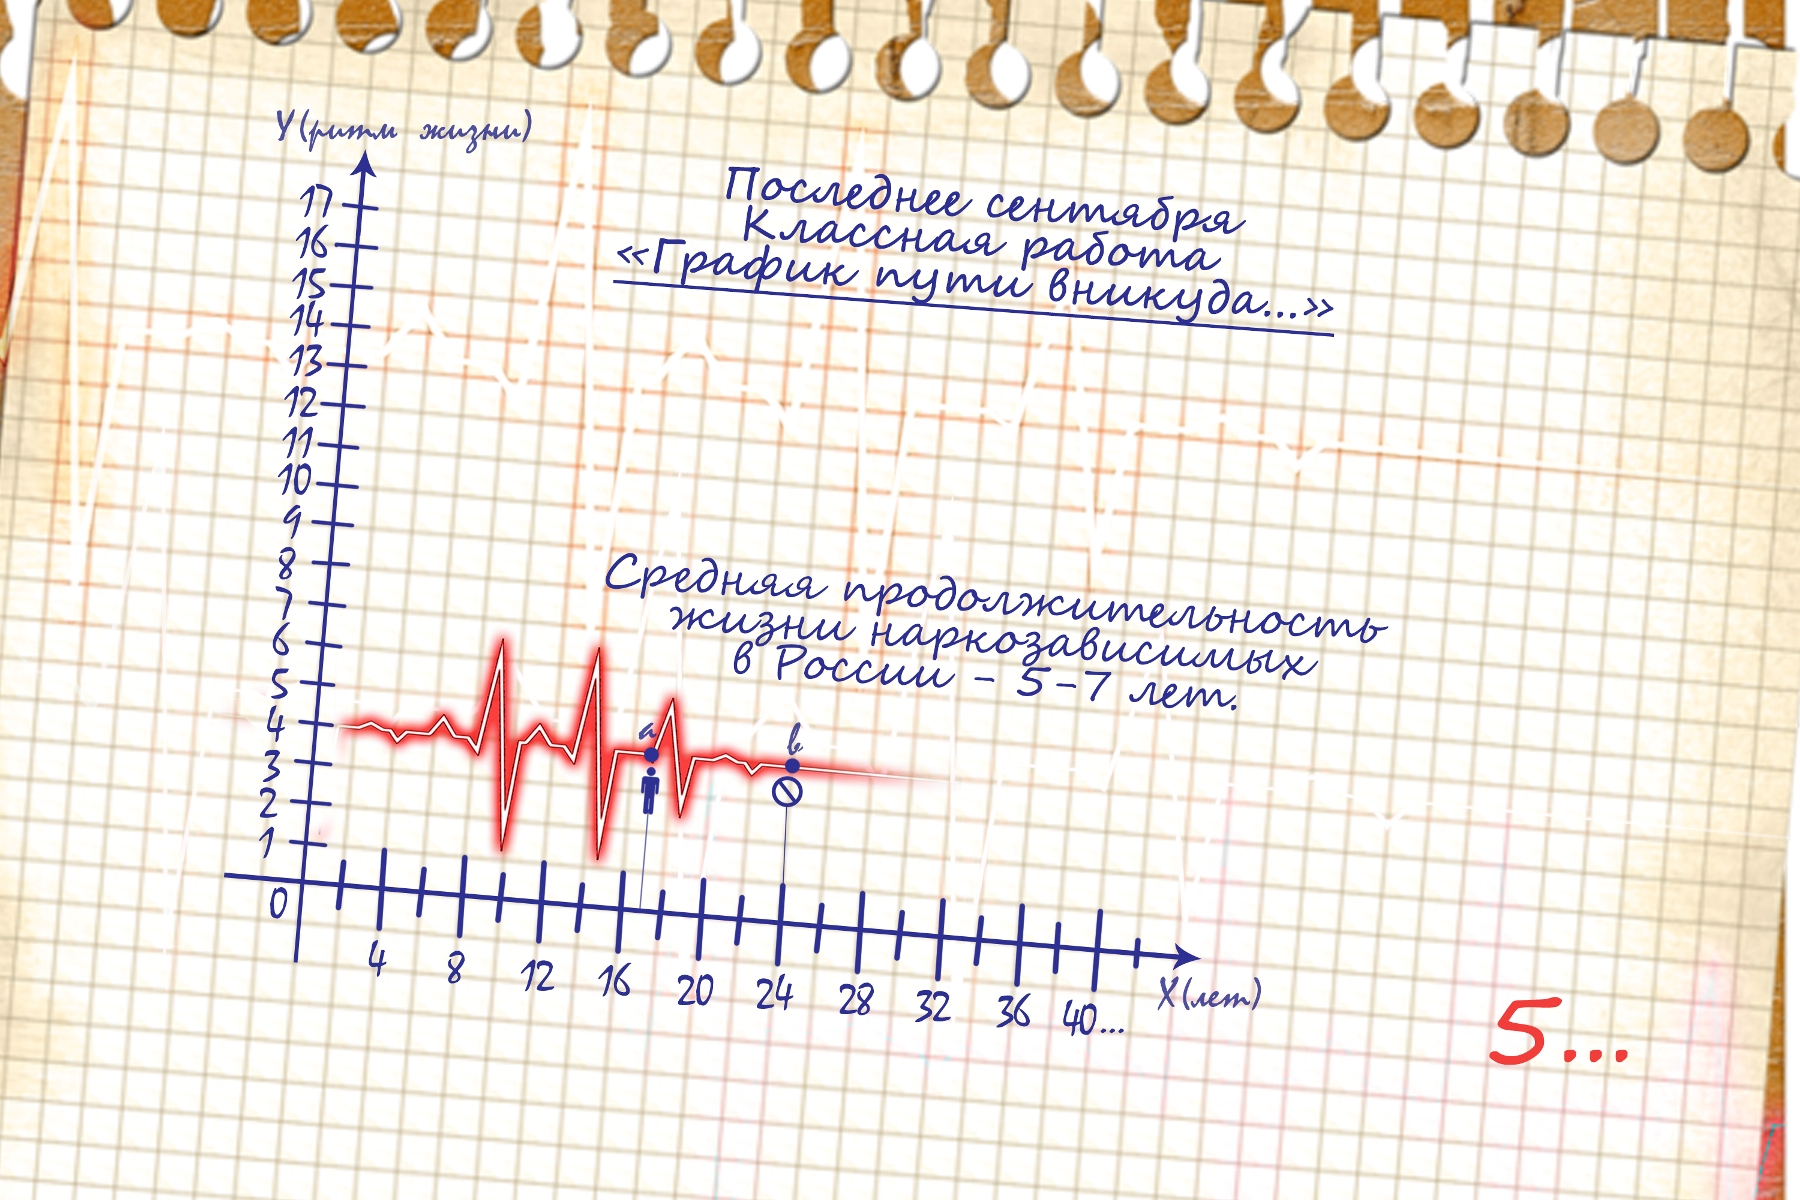 У(ритм жизни)
Последнее сентября
Классная работа
«График пути вникуда...»
17
16
15
14
13
12
11
10
9
8
7
6
5
4
3
2
1
0
Средняя продолжительность
жизни наркозависимых
в России - 5-7 лет.
а
в
4 8 12 16 20 24 28 32 36 40...
Х(лет)
5...